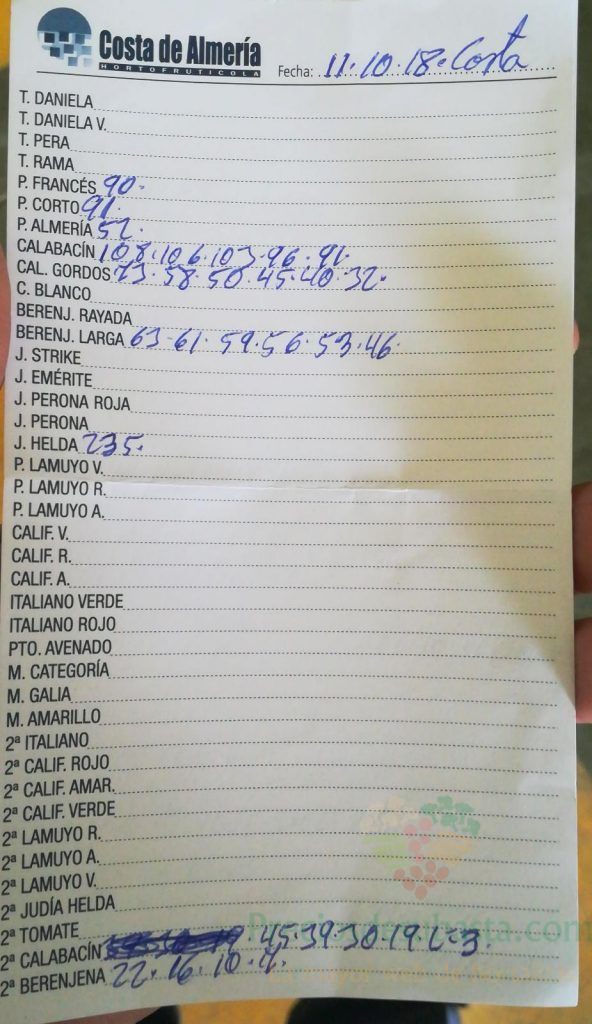 Costa de Almería
HORTOFRUTICOLA
Fecha: 11·10·18·Costa
T. DANIELA
T. DANIELA V.
T. PERA
T. RAMA
P. FRANCÉS 90·
P. CORTO 91·
P. ALMERÍA 52·
CALABACÍN 108·106·103·96·91·
CAL. GORDOS 73·58·50·45·40·32·
C. BLANCO
BERENJ. RAYADA
BERENJ. LARGA 63·61·59·56·53·46·
J. STRIKE
J. EMÉRITE
J. PERONA ROJA
J. PERONA
J. HELDA 235·
P. LAMUYO V.
P. LAMUYO R.
P. LAMUYO A.
CALIF. V.
CALIF. R.
CALIF. A.
ITALIANO VERDE
ITALIANO ROJO
PTO. AVENADO
M. CATEGORÍA
M. GALIA
M. AMARILLO
2ª ITALIANO
2ª CALIF. ROJO
2ª CALIF. AMAR.
2ª CALIF. VERDE
2ª LAMUYO R.
2ª LAMUYO A.
2ª LAMUYO V.
2ª JUDÍA HELDA
2ª TOMATE
Preciosdesubasta.com
2ª CALABACÍN 45·39·30·19·6·3·
2ª BERENJENA 22·16·10·